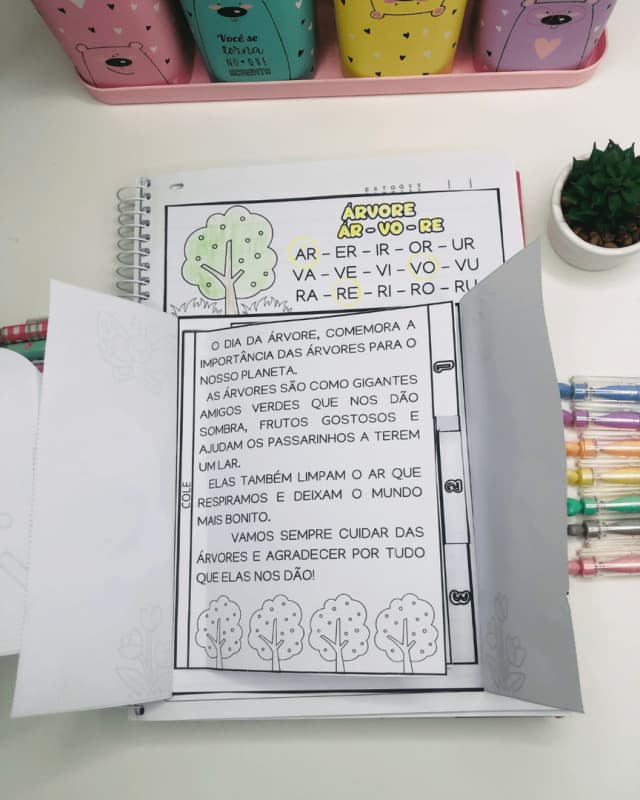 Você se
torna
NO • QUE
ACREDITA
ÁRVORE
ÁR - VO - RE
AR - ER - IR - OR - UR
VA - VE - VI - VO - VU
RA - RE - RI - RO - RU
O DIA DA ÁRVORE, COMEMORA A
IMPORTÂNCIA DAS ÁRVORES PARA O
NOSSO PLANETA.
AS ÁRVORES SÃO COMO GIGANTES
AMIGOS VERDES QUE NOS DÃO
SOMBRA, FRUTOS GOSTOSOS E
AJUDAM OS PASSARINHOS A TEREM
UM LAR.
ELAS TAMBÉM LIMPAM O AR QUE
RESPIRAMOS E DEIXAM O MUNDO
MAIS BONITO.
VAMOS SEMPRE CUIDAR DAS
ÁRVORES E AGRADECER POR TUDO
QUE ELAS NOS DÃO!
COLE
1
2
3